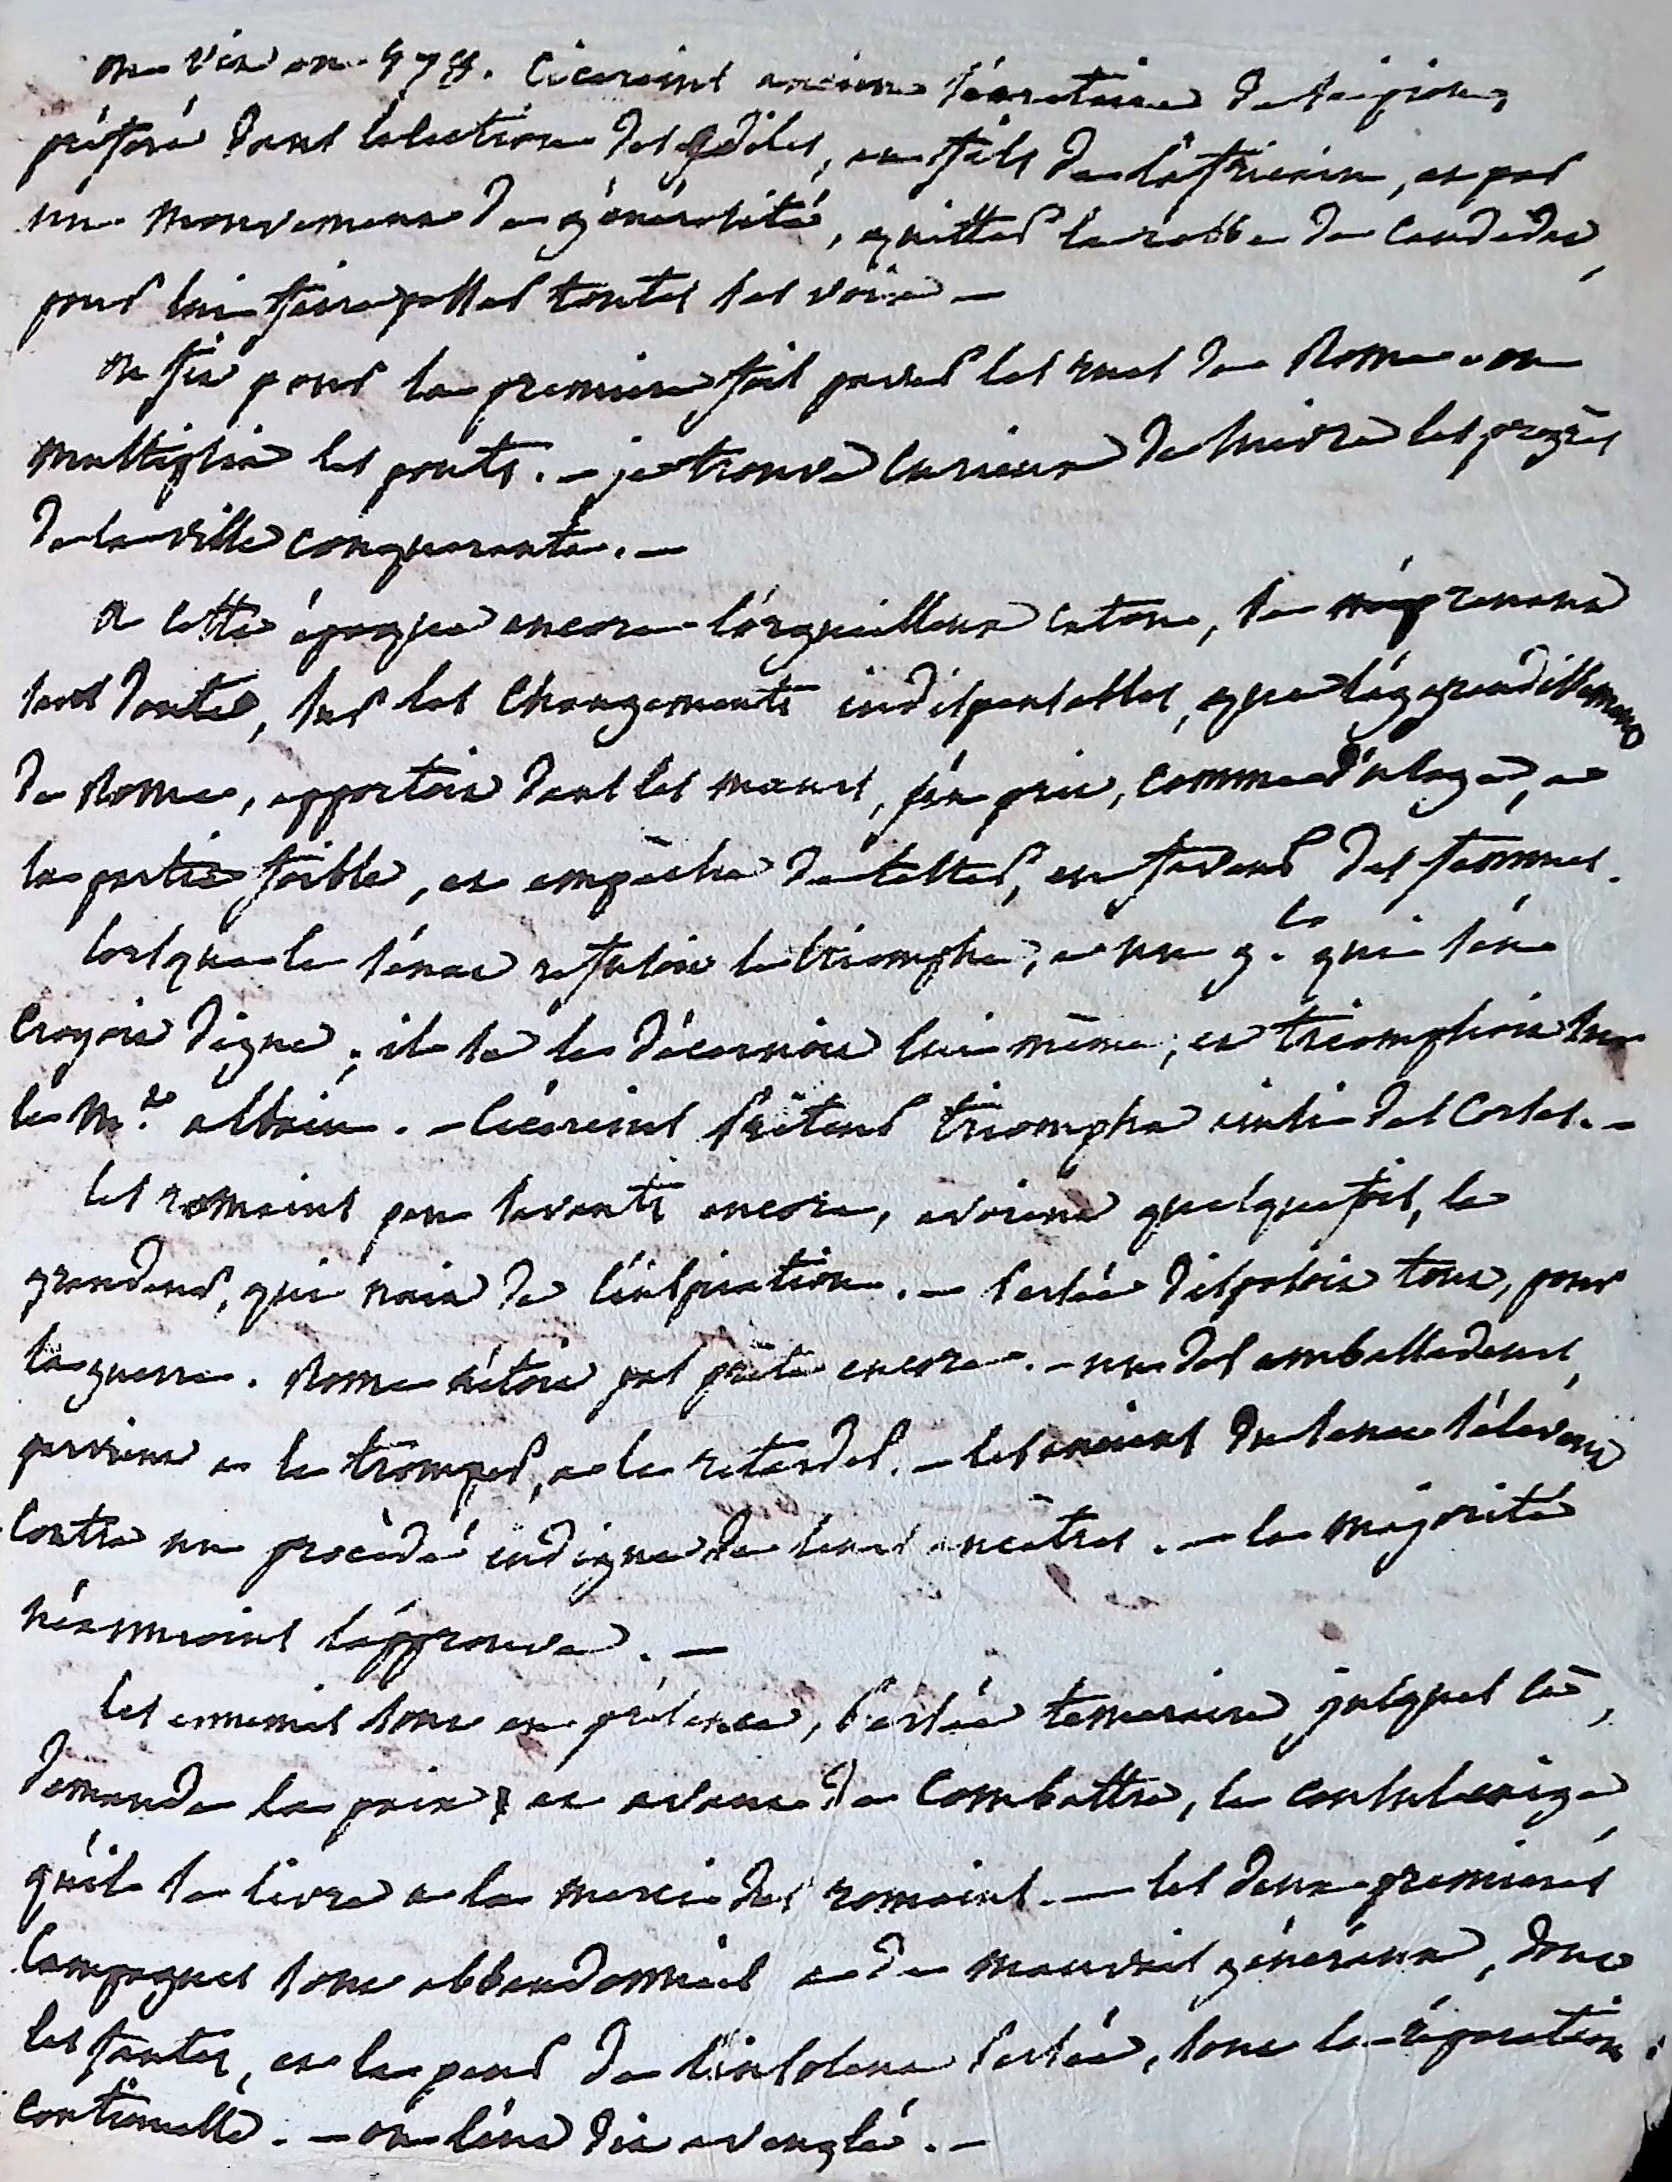 on vit en 578. Cicereius ancien sécretaire de scipion,
préféré dans l'election des Ediles, au fils de l'africain, et par
un mouvement de générosité, quitter la robbe de candidat,
pour lui faire passer toutes les voix –
on fit pour la premiere fois paver les rues de Rome. on
multiplia les ponts. – je trouve curieux de suivre les progrès
de la ville conquerante. –
a cette époque encore l'orgueilleux caton, se méprenant
sans doute, sur les changements indispensables, que l'aggrandissement
de Rome, apportoit dans les mœurs, s'en prit, comme d'usage, a
la partie foible, et empêcha de tester, en faveur des femmes.
lorsque le sénat refusoit le triomphe, a un g.al qui s'en
croyoit digne; il se le décernoit lui même, et triomphoit sur
le M.t albain. – Cicereius prêteur triompha ainsi des Corses. –
les romains peu savants encore, avoient quelquefois, la
grandeur, qui nait de l'inspiration. – Persée disposoit tout, pour
la guerre. Rome n'étoit pas prête encore. – un des ambassadeurs,
parvint a le tromper, a le retarder. – les anciens du senat s'élevent
contre un procédé indigne de leurs ancêtres. – la majorité
néanmoins l'approuva. –
les ennemis sont en présence, Persée temeraire jusques là,
demande la paix et avant de combattre, le consul exige
qu'il se livre a la merci des romains. – les deux premieres
campagnes sont abbandonnées a de mauvais généraux, dont
les fautes, et la peur de l'insolent Persée, sont la réparation
continuelle. – on l'eut dit aveuglé. –